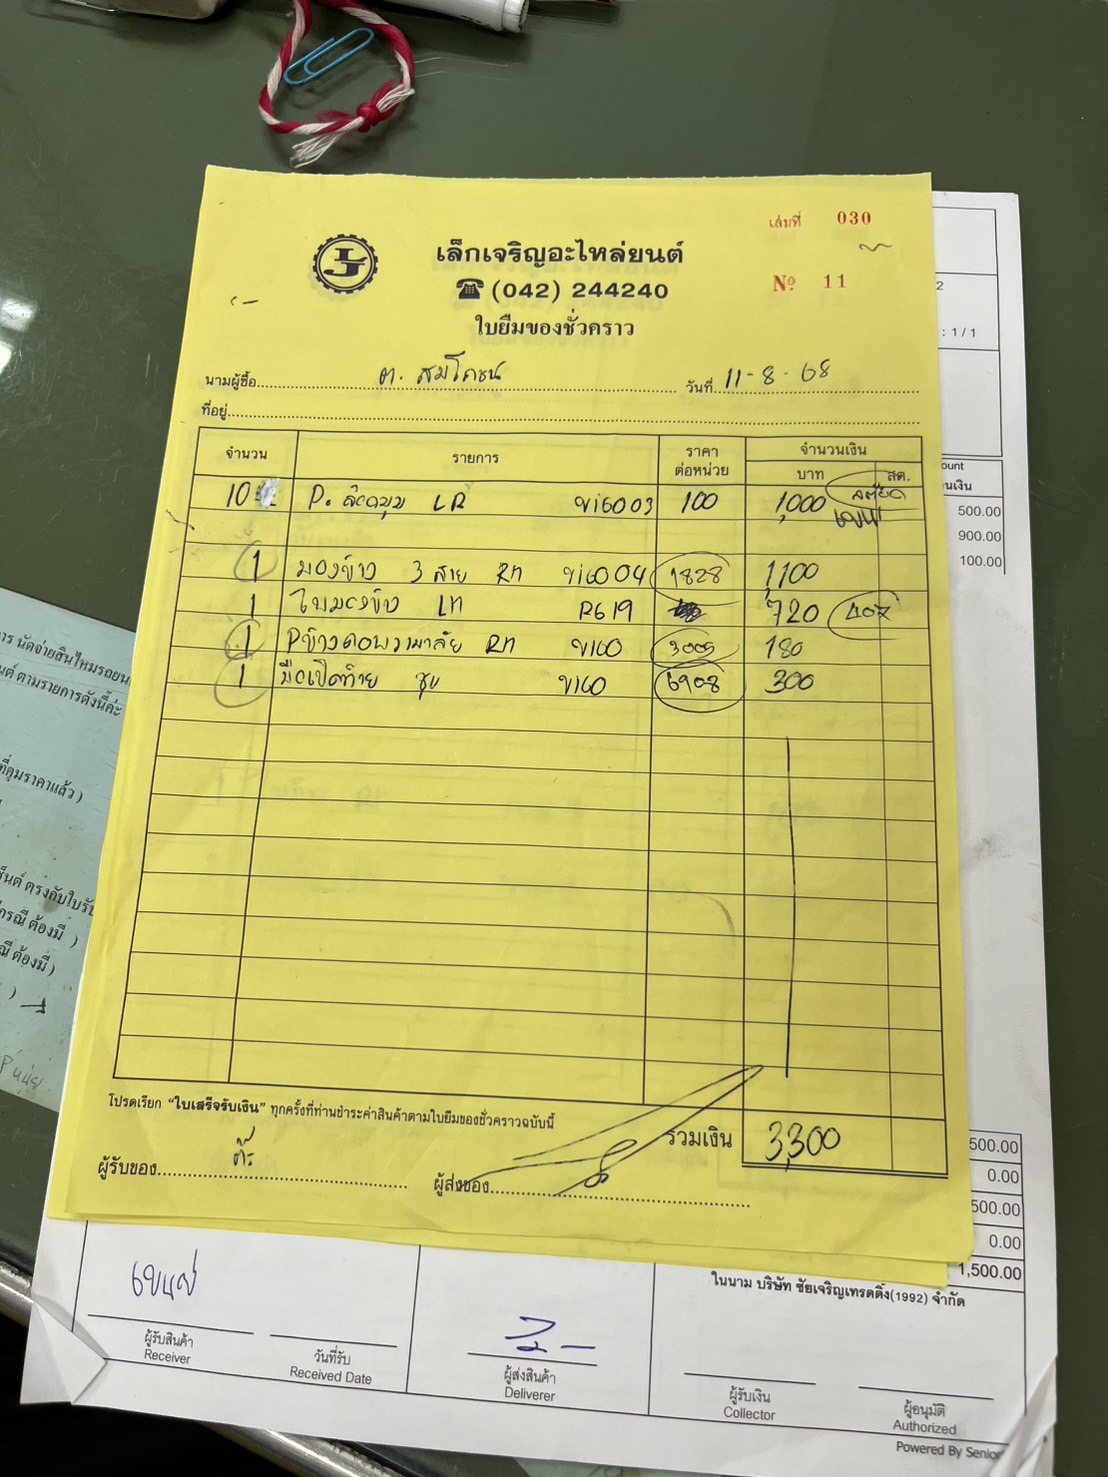 เล่มที่ 030
เล็กเจริญอะไหล่ยนต์
LJ
☎ (042) 244240
Nº 11
ใบยืมของชั่วคราว
นามผู้ซื้อ ต. สมโภชน์ วันที่ 11-8-68
ที่อยู่
จำนวน รายการ ราคาต่อหน่วย จำนวนเงิน
บาท สต.
10 LR vigo03 100 1,000
1 มองข้าง 3 สาย RH vigo04 1828 1,100
1 ใบมองข้าง LH R619 720 407
1 RH vigo 3009 180
1 มือเปิดท้าย ชุบ vigo 6908 300
โปรดเรียก “ใบเสร็จรับเงิน” ทุกครั้งที่ท่านชำระค่าสินค้าตามใบยืมของชั่วคราวฉบับนี้
รวมเงิน 3,300
ผู้รับของ ผู้ส่งของ
2
: 1/1
ount
นเงิน
500.00
900.00
100.00
500.00
0.00
500.00
0.00
1,500.00
ในนาม บริษัท ชัยเจริญเทรดดิ้ง(1992) จำกัด
ผู้รับสินค้า
Receiver
วันที่รับ
Received Date
ผู้ส่งสินค้า
Deliverer
ผู้รับเงิน
Collector
ผู้อนุมัติ
Authorized
Powered By Senior
การ นัดจ่ายสินไหมรถยน
นต์ ตามรายการดังนี้ค่ะ
ที่คุมราคาแล้ว )
ซ็นต์ ตรงกับใบรับ
กรณี ต้องมี )
ณี ต้องมี )